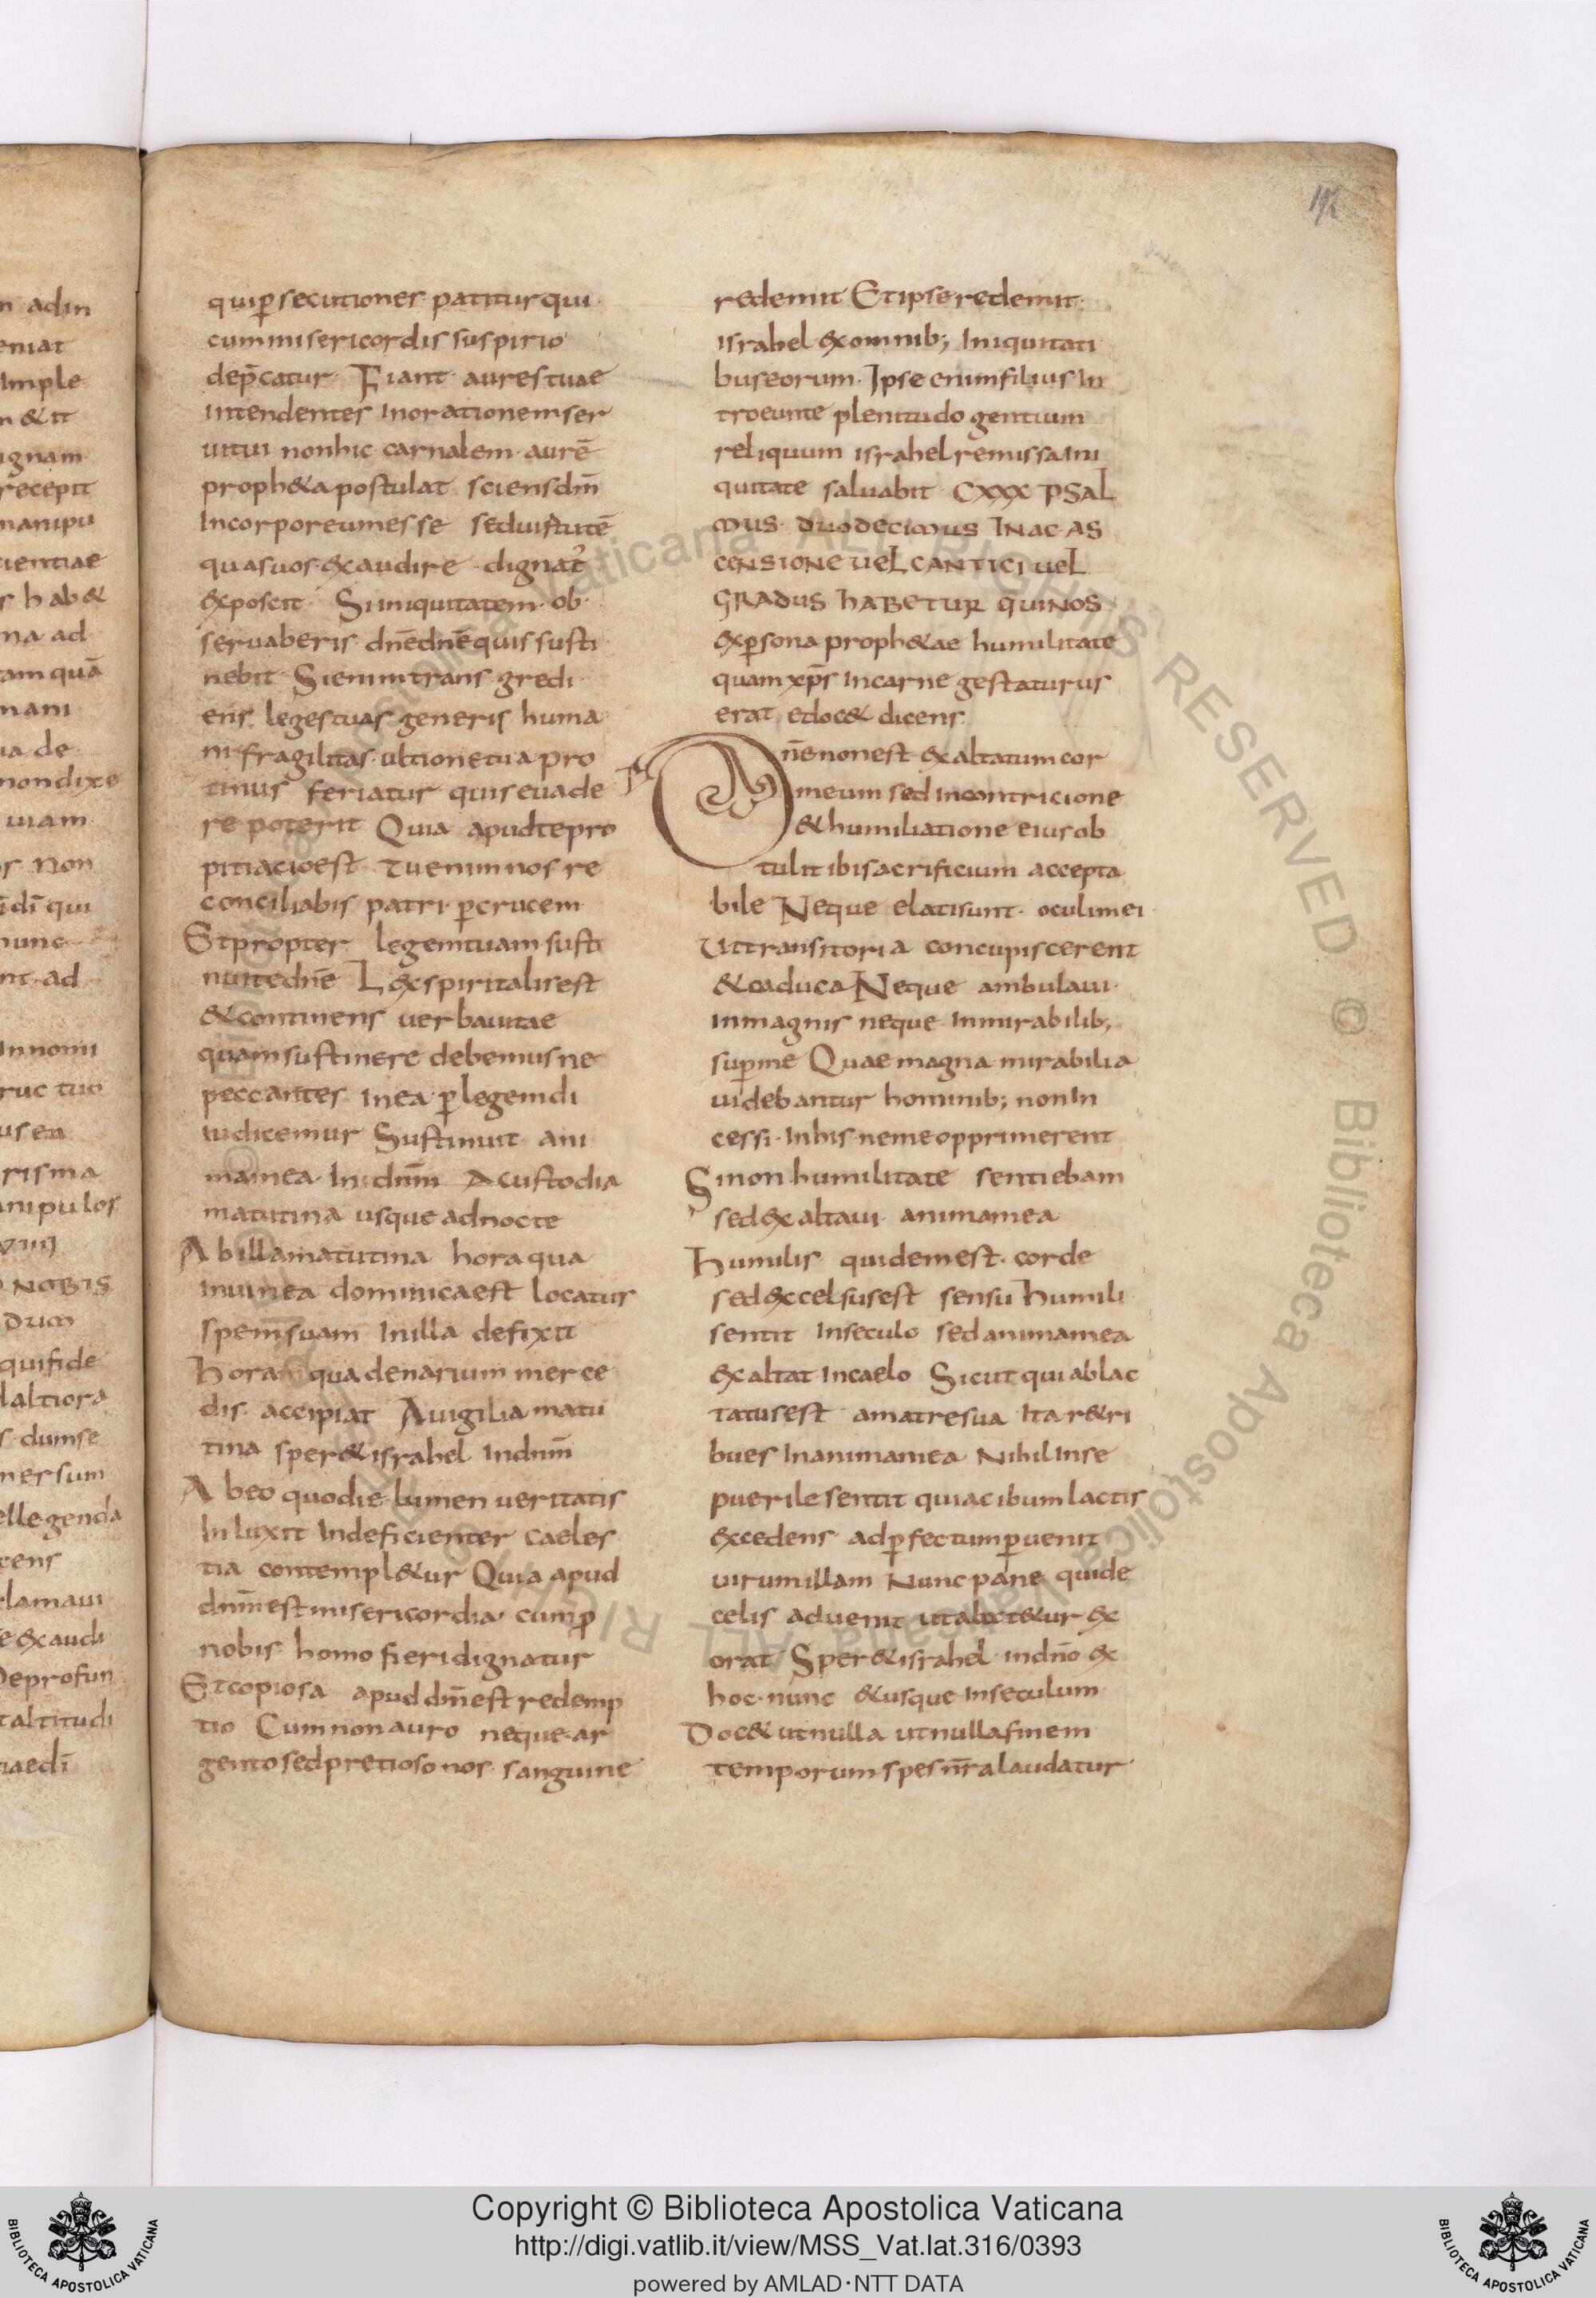 n adin
eniat
Imple
n & it
ignam
recepit
manipu
cientiae
r hab&
ma ad
tam quā
mani
ua de
nondixe
uiam
os Non
qui
nunc
nt ad
Innomi
ruc tuo
us ea
risma
anipulos
NOBIS
quifide
laltiora
s dumse
mersum
ellegenda
cens
clamaui
e exaudi
Deprofun
taltitudi
192
quip̄secutiones patitur qui
cummisericordis suspirio
dep̄catur Fiant aures tuae
Intendentes Inorationemser
uitui nonhic carnalem aurē
proph&a postulat sciensdm̄
Incorporeumesse seduirtutē
quasuos exaudire dignat᷑
exposcit Siiniquitatem ob
seruaberis dn̄edn̄e quis susti
nebit Sienimtrans gredi
ens legestuas generis huma
ni fragilitas ultionetua pro
tinus feriatur quiseuade
re poterit Quia apudtepro
pitiacioest Tuenimnos re
conciliabis patri p̄crucem
Etpropter legemtuamsusti
nuitedn̄e Lexspiritalisest
&continens uerbauitae
quamsustinere debemusne
peccantes Inea p̄legemdi
iudicemur Sustinuit ani
mamea In dnm̄ Acustodia
matutina usque adnocte
Abillamatutina hora qua
inuinea dominicaest locatus
spemsuam Inilla defixit
hora qua denarium merce
dis accipiat Auigilia matu
tina sper&israhel Indnm̄
Abeo quodie lumen ueritatis
Inluxit Indeficienter caeles
tia contempl&ur Quia apud
dnm̄est misericordia cump̄
nobis homo fieri dignatur
Etcopiosa apud dm̄est redemp
tio Cum non auro neque ar
gento sedpretioso nos sanguine
redemit Etipse redemit
israhel exomnib; Iniquitati
buseorum Ipse enimfilius In
troeunte plenitudo gentium
reliquum israhel remissa Ini
quitate saluabit CXXX PSAL
MUS DUODECIMUS INAC AS
CENSIONE UEL CANTICI UEL
GRADUS HABETUR QUINOS
exp̄sona proph&ae humilitate
quam xp̄s Incarne gestaturus
erat edoc& dicens
Dn̄enonest exaltatumcor
meum sed Incontricione
&humiliatione eius ob
tulit ibisacrificium accepta
bile Neque elatisunt oculimei
Uttransitoria concupiscerent
&caduca Neque ambulaui
inmagnis neque Inmirabilib;
sup̄me Quae magna mirabilia
uidebantur hominib; nonIn
cessi Inhis neme opprimerent
Sinon humilitate sentiebam
sed exaltaui animamea
Humilis quidemest corde
sed excelsusest sensu humili
sentit Inseculo sedanimamea
exaltat Incaelo Sicut quiablac
tatusest amatresua Ita r&ri
bues Inanimamea Nihil Inse
puerile sentit quiacibum lactis
excedens adp̄fectump̄uenit
uirumillam Nunc pane quide
celis aduenit utalict&ur ex
orat Sper&israhel indn̄o ex
hoc nunc &usque Inseculum
Doc& utnulla utnullafinem
temporum spes nr̄a laudatur
Copyright © Biblioteca Apostolica Vaticana
http://digi.vatlib.it/view/MSS_Vat.lat.316/0393
powered by AMLAD·NTT DATA
BIBLIOTECA APOSTOLICA VATICANA
BIBLIOTECA APOSTOLICA VATICANA